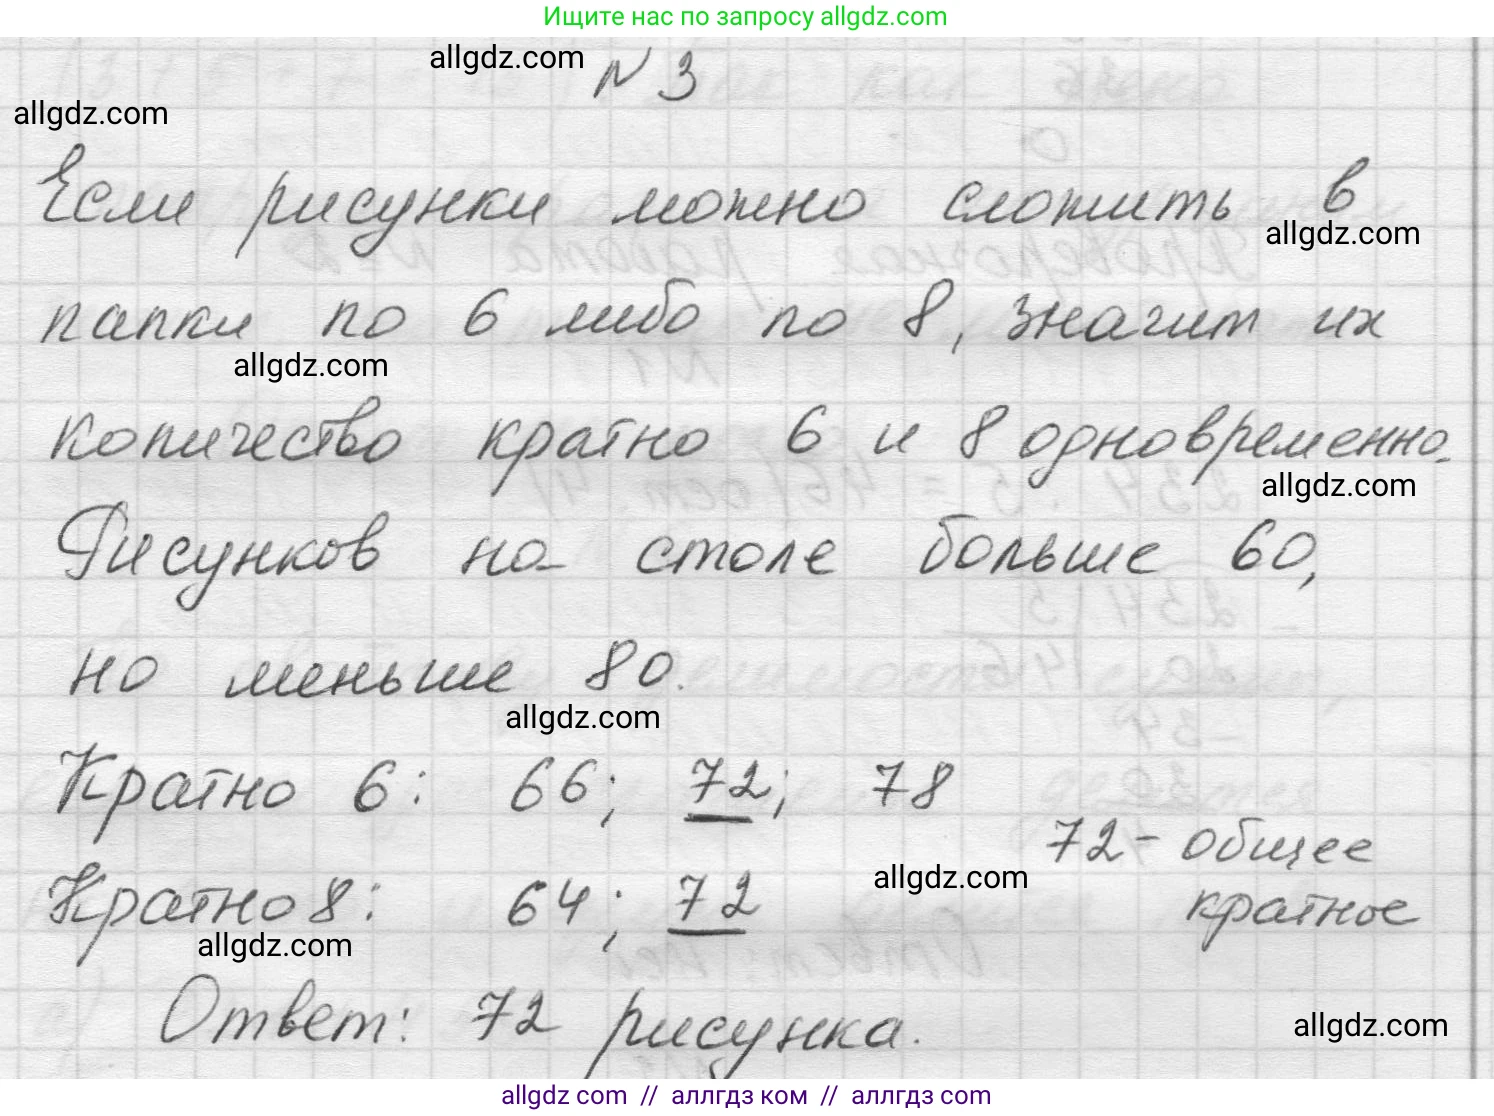 Ищите нас по запросу allgdz.com
allgdz.com
N 3
allgdz.com
Если рисунки можно сложить в
allgdz.com
папки по 6 либо по 8, значит их
allgdz.com
количество кратно 6 и 8 одновременно.
allgdz.com
Рисунков на столе больше 60,
но меньше 80.
allgdz.com
Кратно 6: 66; 72; 78
72 - общее
кратное
Кратно 8: 64; 72
allgdz.com
allgdz.com
Ответ: 72 рисунка.
allgdz.com
allgdz com // аллгдз ком // аллгдз com